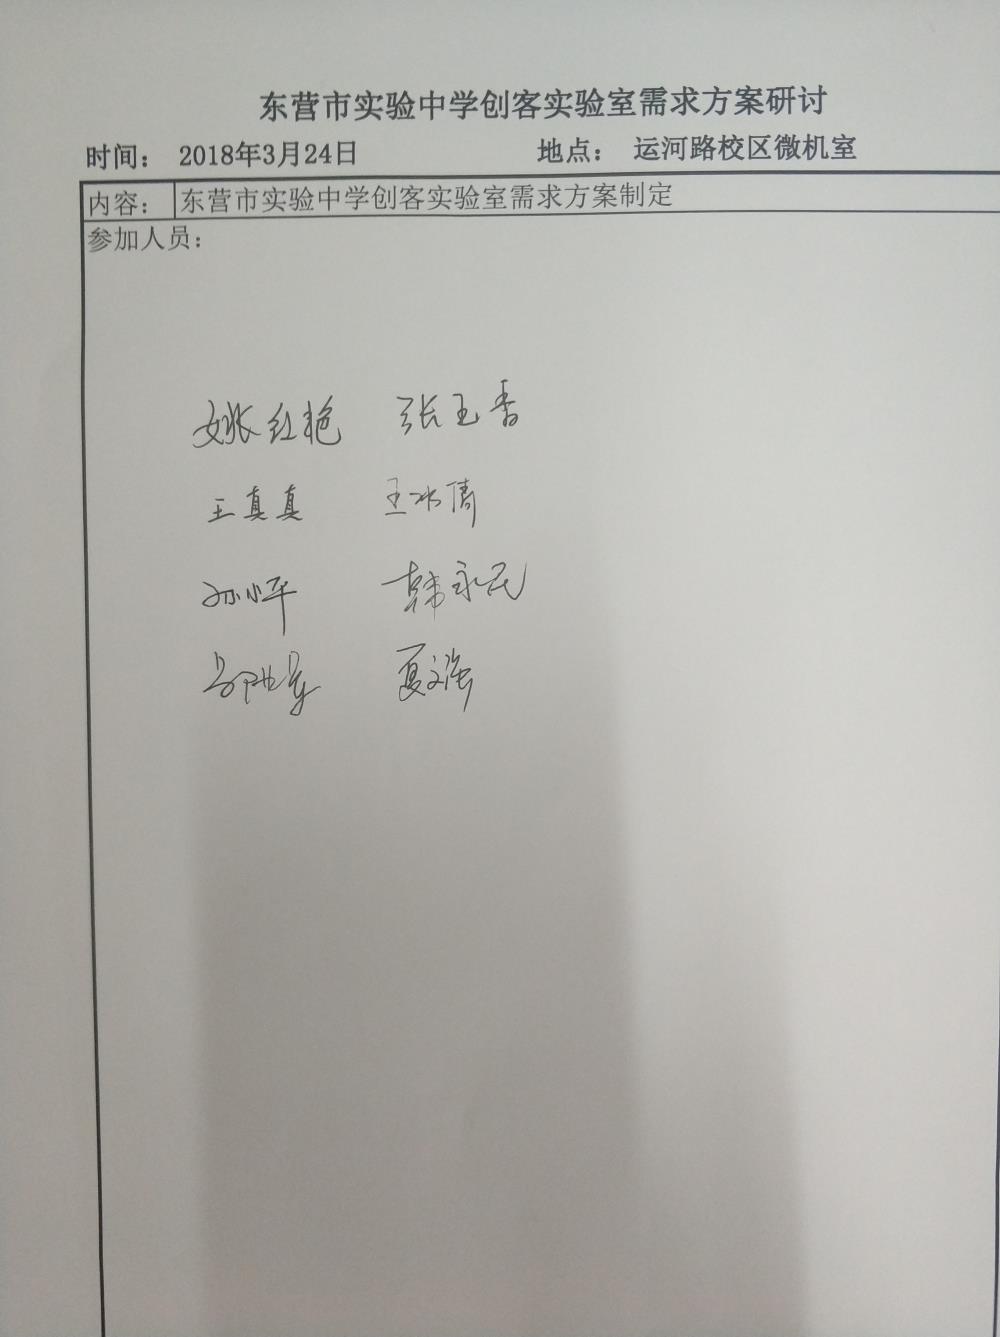 东营市实验中学创客实验室需求方案研讨
时间： 2018年3月24日 地点： 运河路校区微机室
内容： 东营市实验中学创客实验室需求方案制定
参加人员：
姚红艳 张玉香
王真真 王冰倩
孙小平 韩永民
夏文强